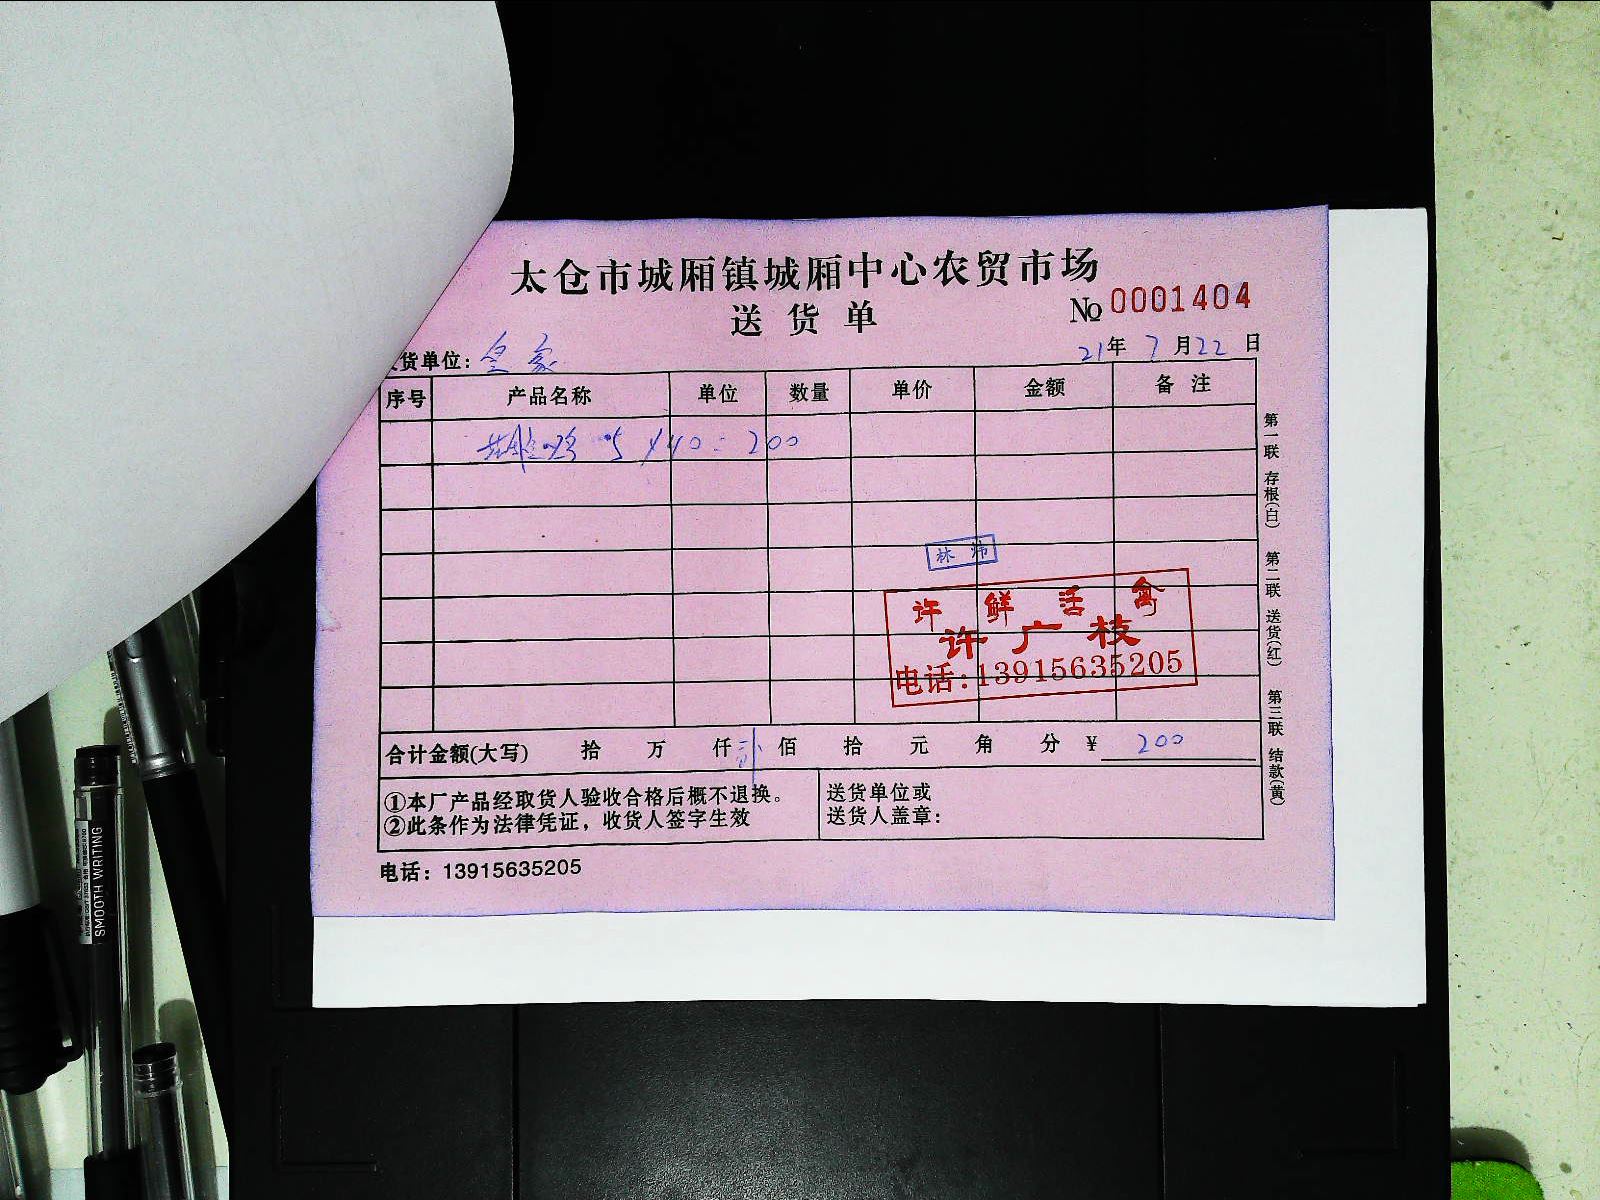 太仓市城厢镇城厢中心农贸市场
送货单
№ 0001404
货单位：皇家
21年7月22日
序号 产品名称 单位 数量 单价 金额 备注
5×40=200
林炜
许鲜活禽
许广枝
电话:13915635205
合计金额(大写) 拾 万 仟 佰 拾 元 角 分 ¥ 200
①本厂产品经取货人验收合格后概不退换。
②此条作为法律凭证，收货人签字生效
送货单位或
送货人盖章：
电话：13915635205
第一联 存根(白) 第二联 送货(红) 第三联 结款(黄)
SMOOTH WRITING